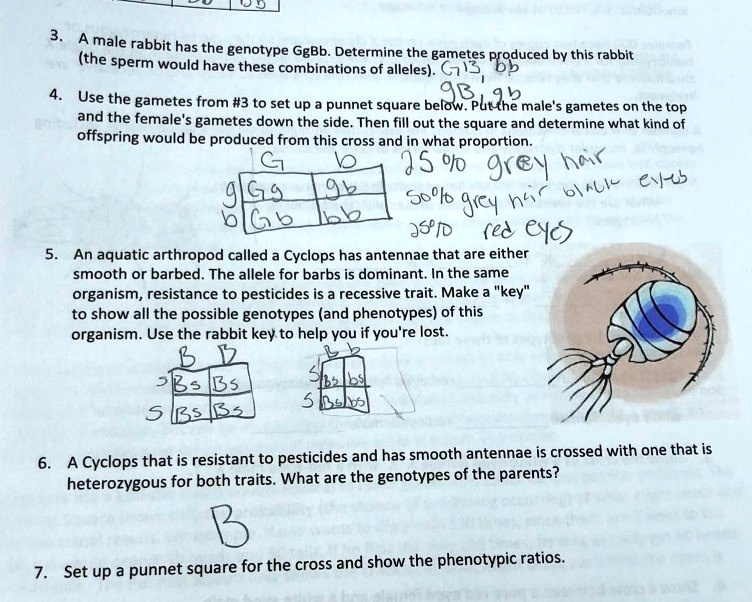 3. A male rabbit has the genotype GgBb. Determine the gametes produced by this rabbit
(the sperm would have these combinations of alleles). GB, bb
gB, gb
4. Use the gametes from #3 to set up a punnet square below. Put the male's gametes on the top
and the female's gametes down the side. Then fill out the square and determine what kind of
offspring would be produced from this cross and in what proportion.
G b 25 % grey hair
g Gg gb 50% grey hair black eyes
b Gb bb 25% red eyes
5. An aquatic arthropod called a Cyclops has antennae that are either
smooth or barbed. The allele for barbs is dominant. In the same
organism, resistance to pesticides is a recessive trait. Make a "key"
to show all the possible genotypes (and phenotypes) of this
organism. Use the rabbit key to help you if you're lost.
B B B b
S Bs Bs S Bs bs
S Bs Bs S Bs bs
6. A Cyclops that is resistant to pesticides and has smooth antennae is crossed with one that is
heterozygous for both traits. What are the genotypes of the parents?
B
7. Set up a punnet square for the cross and show the phenotypic ratios.